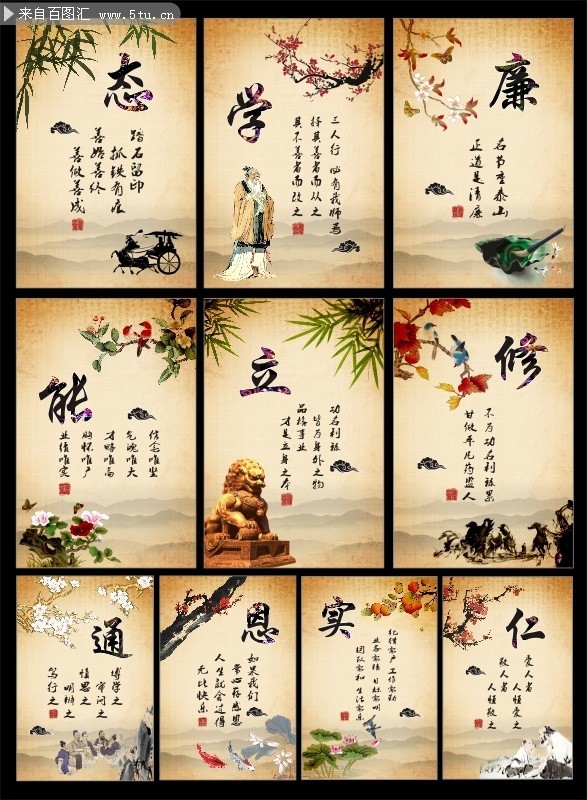 来自百图汇 www.5tu.cn
态
踏石留印
抓铁有痕
善始善终
善做善成
学
三人行 必有我师焉
择其善者而从之
其不善者而改之
廉
名节重泰山
正道是清廉
能
信念唯坚
气魄唯大
才略唯高
胸怀唯广
业绩唯实
立
功名利禄
皆为身外之物
品格事业
才是立身之本
修
不为功名利禄累
甘做平凡药监人
通
博学之
审问之
慎思之
明辨之
笃行之
恩
如果我们
常心存感恩
人生就会过得
无比快乐
实
工作家勤
业务家精
团队家和 生活家乐
仁
爱人者
人恒爱之
敬人者
人恒敬之